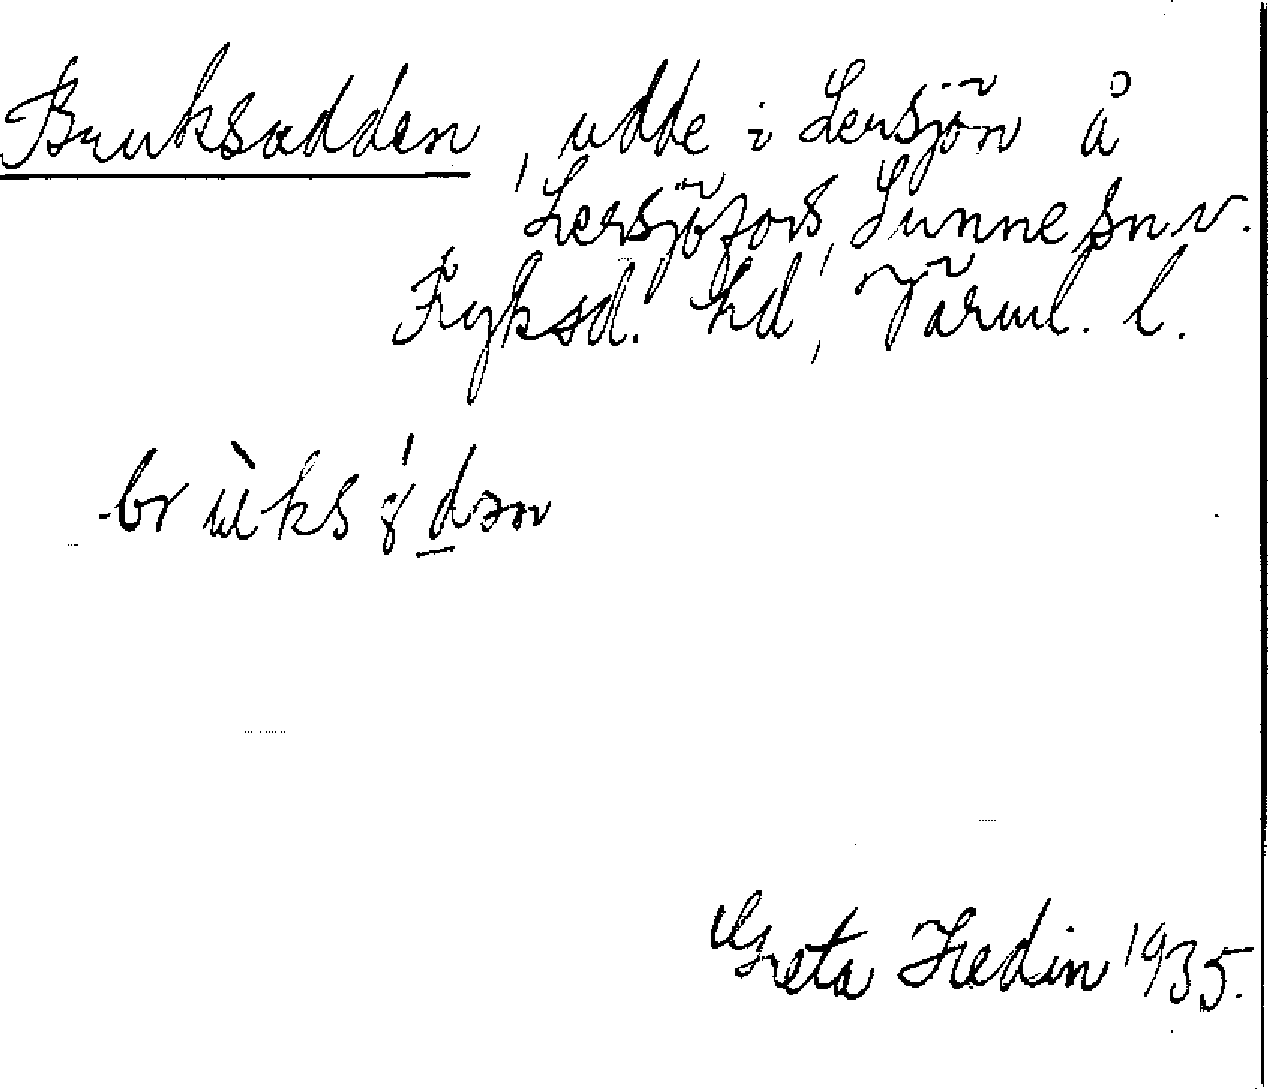 Bruksudden, udde i Lersjön å
Lersjöfors, Sunne sn. v.
Fryksd. hd, Värml. l.
Greta Hedin 1935.